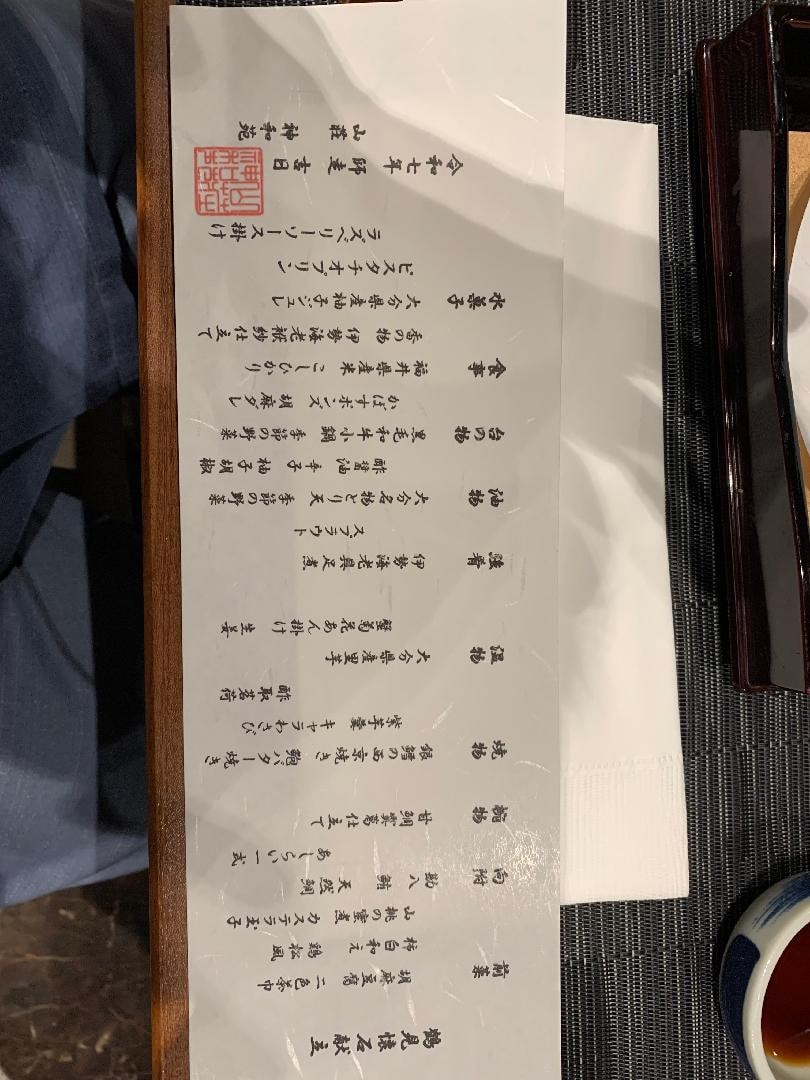 鶴見懐石献立
前菜 胡麻豆腐 二色茶巾
柿白和え 鶏松風
山桃の蜜煮 カステラ玉子
向附 勘八 鮪 天然鯛
あしらい一式
椀物 甘鯛 葛仕立て
焼物 銀鱈の西京焼き 鮑バター焼き
紫芋羹 キャラわさび
酢取茗荷
温物 大分県産里芋
蟹菊花あん掛け 生姜
強肴 伊勢海老具足煮
スプラウト
油物 大分名物とり天 季節の野菜
酢醤油 辛子 柚子胡椒
台の物 黒毛和牛小鍋 季節の野菜
かぼすポンズ 胡麻ダレ
食事 福井県産米 こしひかり
香の物 伊勢海老袱紗仕立て
水菓子 大分県産柚子ジュレ
ピスタチオプリン
ラズベリーソース掛け
令和七年 師走吉日
山荘 神和苑